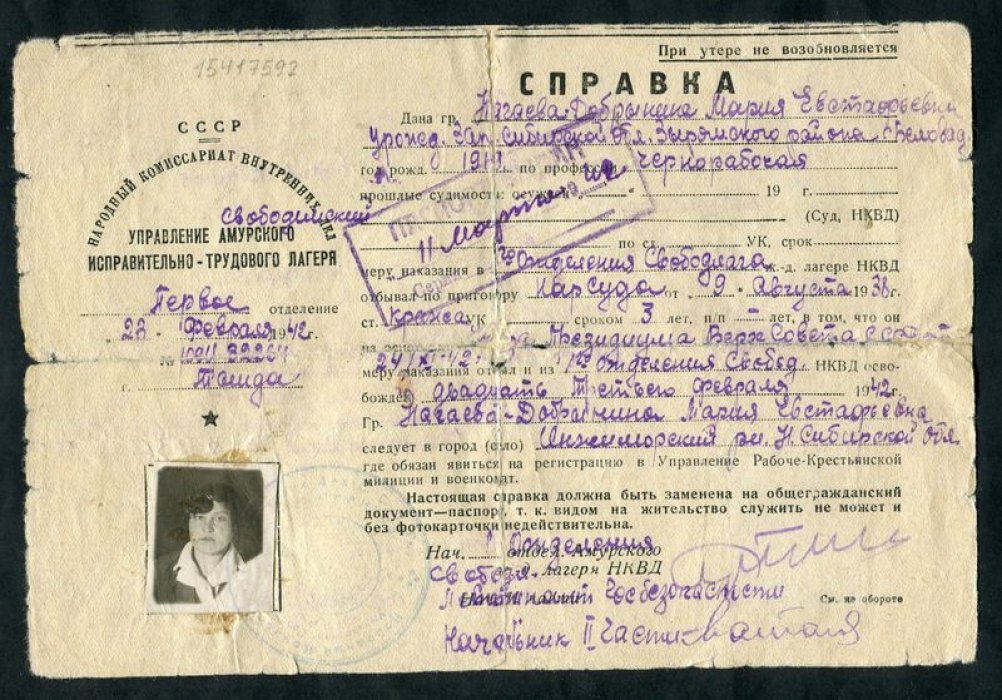 При утере не возобновляется
15417592
СПРАВКА
СССР
НАРОДНЫЙ КОМИССАРИАТ ВНУТРЕННИХ ДЕЛ
Свободинский
УПРАВЛЕНИЕ АМУРСКОГО
ИСПРАВИТЕЛЬНО-ТРУДОВОГО ЛАГЕРЯ
Первое отделение
23 Февраля 1942г.
№
г.
Дана гр. Нагаева-Добрынина Мария Евстафьевна
урожед. Зап. Сибирской обл. Зырямского района
год рожд. 1919 по профессии чернорабочая
прошлые судимости: осужден 19 г.
11 Марта 42
(Суд, НКВД)
по ст. УК, срок
меру наказания в отделения Свободлага ж.-д. лагере НКВД
отбывал по приговору НарСуда от 9 Августа 1938г.
ст. Кража УК сроком 3 лет, п/п лет, в том, что он
на основ. Президиума Верх Совета СССР от
меру наказания отбыл и из отделения Свобод. НКВД осво-
божден двадцать Третьего февраля 1942г.
Гр. Нагаева-Добрынина Мария Евстафьевна
следует в город (село) Инжиморский рн. Н. Сибирской обл.
где обязан явиться на регистрацию в Управление Рабоче-Крестьянской
милиции и военкомат.
Настоящая справка должна быть заменена на общегражданский
документ—паспорт, т. к. видом на жительство служить не может и
без фотокарточки недействительна.
Нач. I Отделения отдел. Амурского
Свобод. ж.-д. лагеря НКВД
Лейтенант Госбезопасности
См. на обороте
Начальник II Части